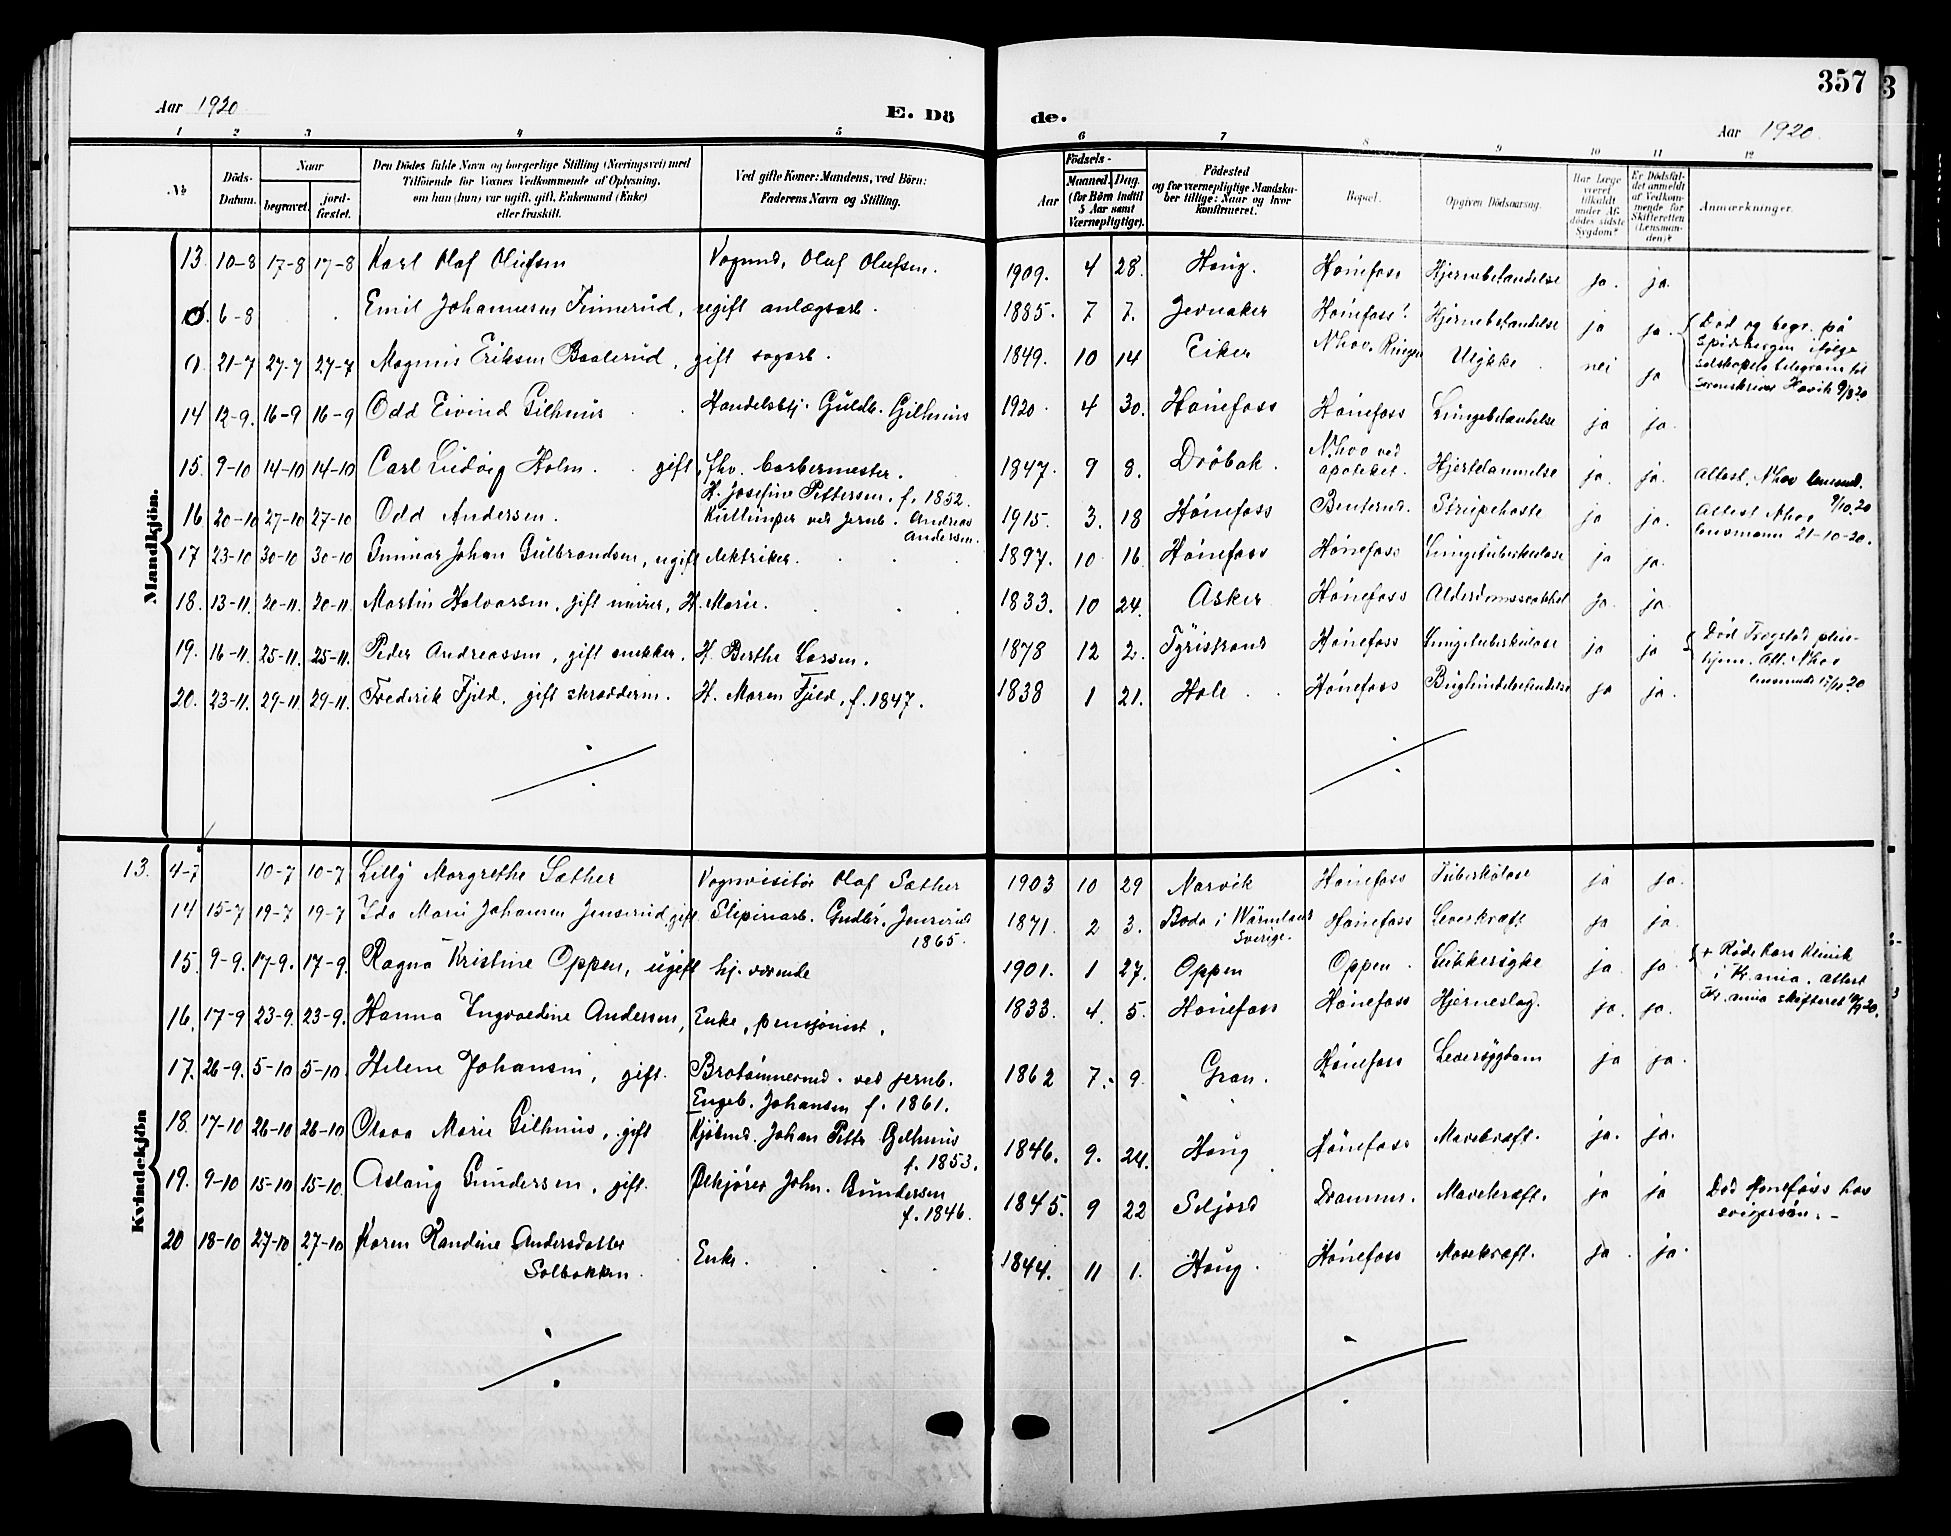 357
3
Aar 1920
E. Dö
de.
Aar 1920.
1 2 3 4 5 6 7 8 9 10 11 12
№
Döds-
Datum.
Naar
begravet.
jord-
fæstet.
Den Dödes fulde Navn og borgerlige Stilling (Næringsvei) med
Tilföiende for Voxnes Vedkommende af Oplysning,
om hun (hun) var ugift, gift, Enkemand (Enke)
eller fraskilt.
Ved gifte Koner: Mandens, ved Börn:
Faderens Navn og Stilling.
Födsels-
Aar
Maaned. Dag.
(for Börn indtil
5 Aar samt
Værnepligtige).
Födested
og for værnepligtige Mandska-
ber tillige: Naar og hvor
konfirmeret.
Bopæl.
Opgiven Dödsaarsag.
Har Læge
været
tilkaldt
under Af-
dödes sidste
Sygdom?
Er Dödsfal-
det anmeldt
af Vedkom-
mende for
Skifteretten
(Lensman-
den)?
Anmærkninger.
Mandkjön.
13. 10-8 17-8 17-8 Karl Olaf Olufsen Vognmd. Olaf Olufsen. 1909. 4 28. Haug. Hönefoss Hjernebetændelse ja. ja.
0. 6-8 Emil Johannesen Finnerud, ugift anlægsarb. 1885. 7 7. Jevnaker Hönefoss! Hjernebetændelse ja ja.
Död og begr. på
Spidsbergen ifölge
selskapets telegram til
Sorenskriver Hovik 9/8 20
0 21-7 27-7 27-7 Magnus Eriksen Baalerud, gift sagarb. 1849. 10 14 Eiker N.hov. Ringer. Ulykke nei ja
14 12-9. 16-9 16-9 Odd Eivind Gilhuus Handelsbtj. Guldb. Gilhuus 1920. 4 30. Hönefoss Hönefoss Lungebetændelse ja ja.
15. 9-10 14-10 14-10 Carl Ludvig Holm. gift, fhv. barbermester. 1847. 9 8. Dröbak. N.hov ved
apoteket. Hjertelammelse ja. ja. Attest. N.hov lensmd.
9/10.20
H. Josefine Pettersen. f. 1852.
16 20-10 27-10 27-10 Odd Andersen. Kullemper ved Jernb. Andreas
Andersen. 1915. 3. 18 Hönefoss Benterud. Strupehoste ja ja. Attest Nhov
lensmann 21-10-20.
17 23-10 30-10 30-10 Gunnar Johan Gulbrandsen, ugift elektriker. 1897. 10. 16. Hönefoss Hönefoss Lungetuberkulose ja ja.
18. 13-11. 20-11. 20-11. Martin Halvorsen, gift murer, H. Marie. 1833. 10 24. Asker Hönefoss Alderdomssvakhet ja. ja.
19. 16-11. 25-11. 25-11. Peder Andreassen, gift snekker. H. Berthe Larsen. 1878 12 2. Tyristrand Hönefoss Lungetuberkulose ja ja
Död Trogstad pleie-
hjem. Att. Nhov
20. 23-11. 29-11. 29-11. Frederik Fjeld, gift skreddern. H. Maren Fjeld, f. 1847. 1838 1 21. Hole Hönefoss Bughindebetændelse ja ja.
Kvindekjön
13. 4-7 10-7 10-7 Lilly Margrethe Sæther Vognvisitör Olaf Sæther 1903 10 29 Narvik Hönefoss Tuberkulose ja ja.
14 15-7 19-7 19-7 Ida Marie Johansen Jenserud, gift Sliperiarb. Gudbr. Jenserud
1865. 1871. 2 3. Boda i Wärmland
Sverige. Hönefoss Leverkræft ja ja.
15. 9-9. 17-9. 17-9. Ragna Kristine Oppen, ugift hj. værende 1901. 1 27. Oppen Oppen. Sukkersyke ja ja.
+ Röde kors klinik
i Kr.ania. attest
Kr.ania skifteret 10/9 20.
16. 17-9 23-9. 23-9. Hanna Ingvaldine Andersen, Enke, pensjonist. 1833. 4. 5. Hönefoss Hönefoss Hjerneslag. ja. ja.
17. 26-9. 5-10 5-10. Helene Johansen, gift. Brotömmermd. ved jernb.
Engeb. Johansen f. 1861. 1862 7. 9. Gran. Hönefoss Leversygdom ja ja.
18. 17-10 26-10 26-10 Olava Marie Gilhuus, gift Kjöbmd. Johan Petter Gilhuus
f. 1853. 1846. 9. 24. Haug Hönefoss Mavekræft. ja. ja.
19. 9-10 15-10 15-10. Aslaug Gundersen, gift. Ölkjörer John. Gundersen
f. 1846. 1845. 9 22 Seljord Drammen. Mavekræft. ja ja Död Hönefoss hos
svigersön. –
20 18-10 27-10 27-10 Karen Randine Andersdatter
Solbakken Enke. 1844. 11 1. Haug. Hönefoss Mavekræft. ja ja.